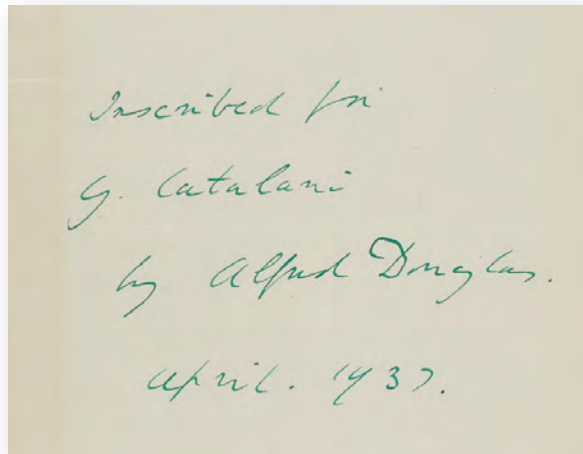 Inscribed for
G. Catalani
by Alfred Douglas.
April. 1937.